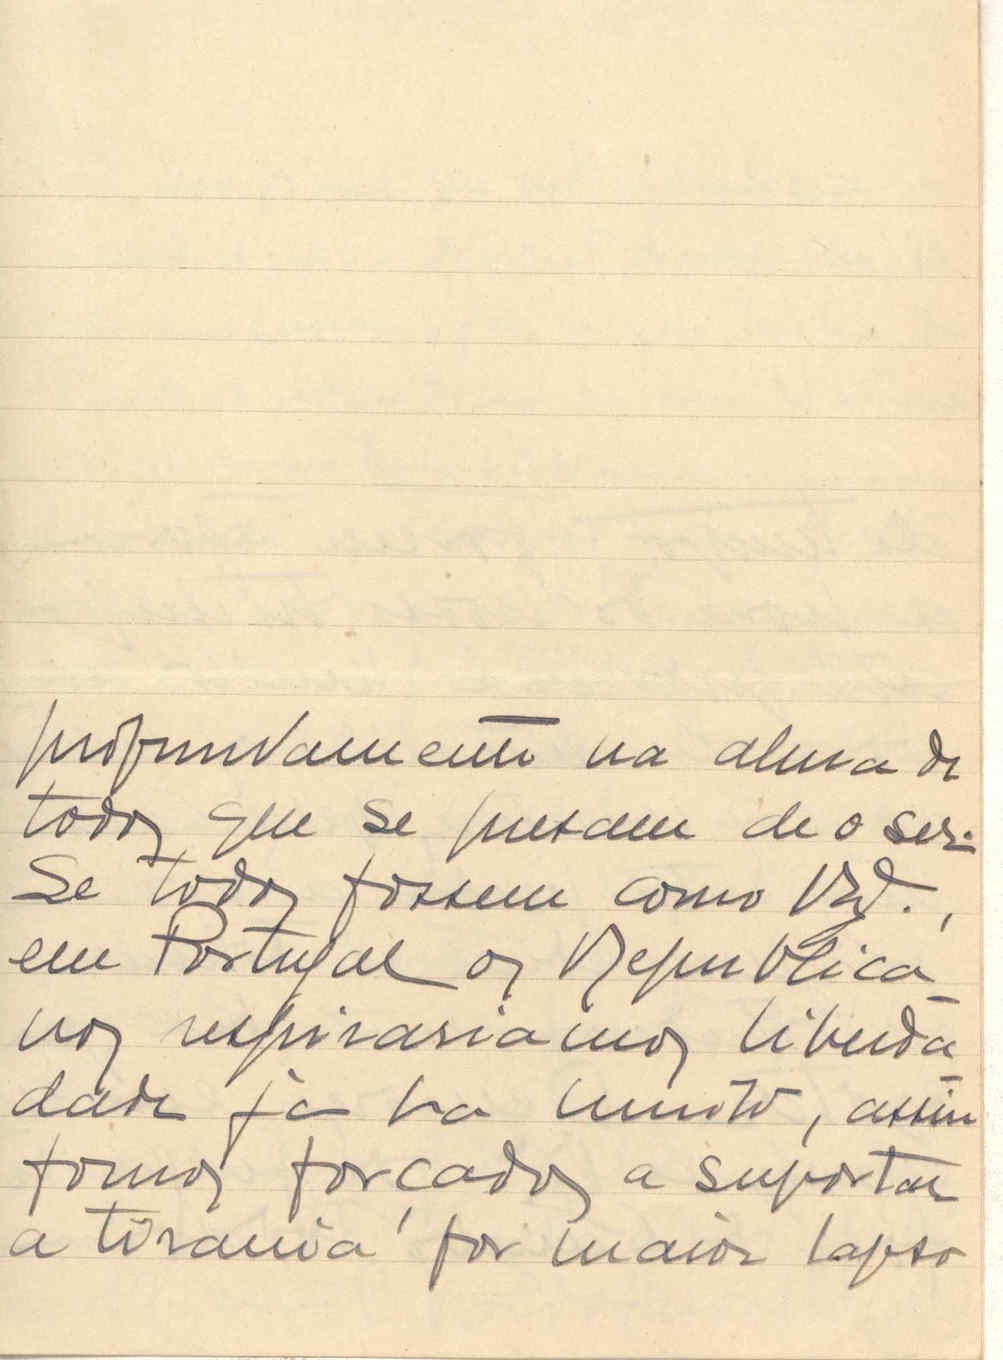 profundamente na alma de
todos que se presam de o ser.
Se todos fossem como V.,
em Portugal os Republica
nos respirariamos liberda
dade já ha muito, assim
fomos forçados a suportar
a tirania por maior lapso